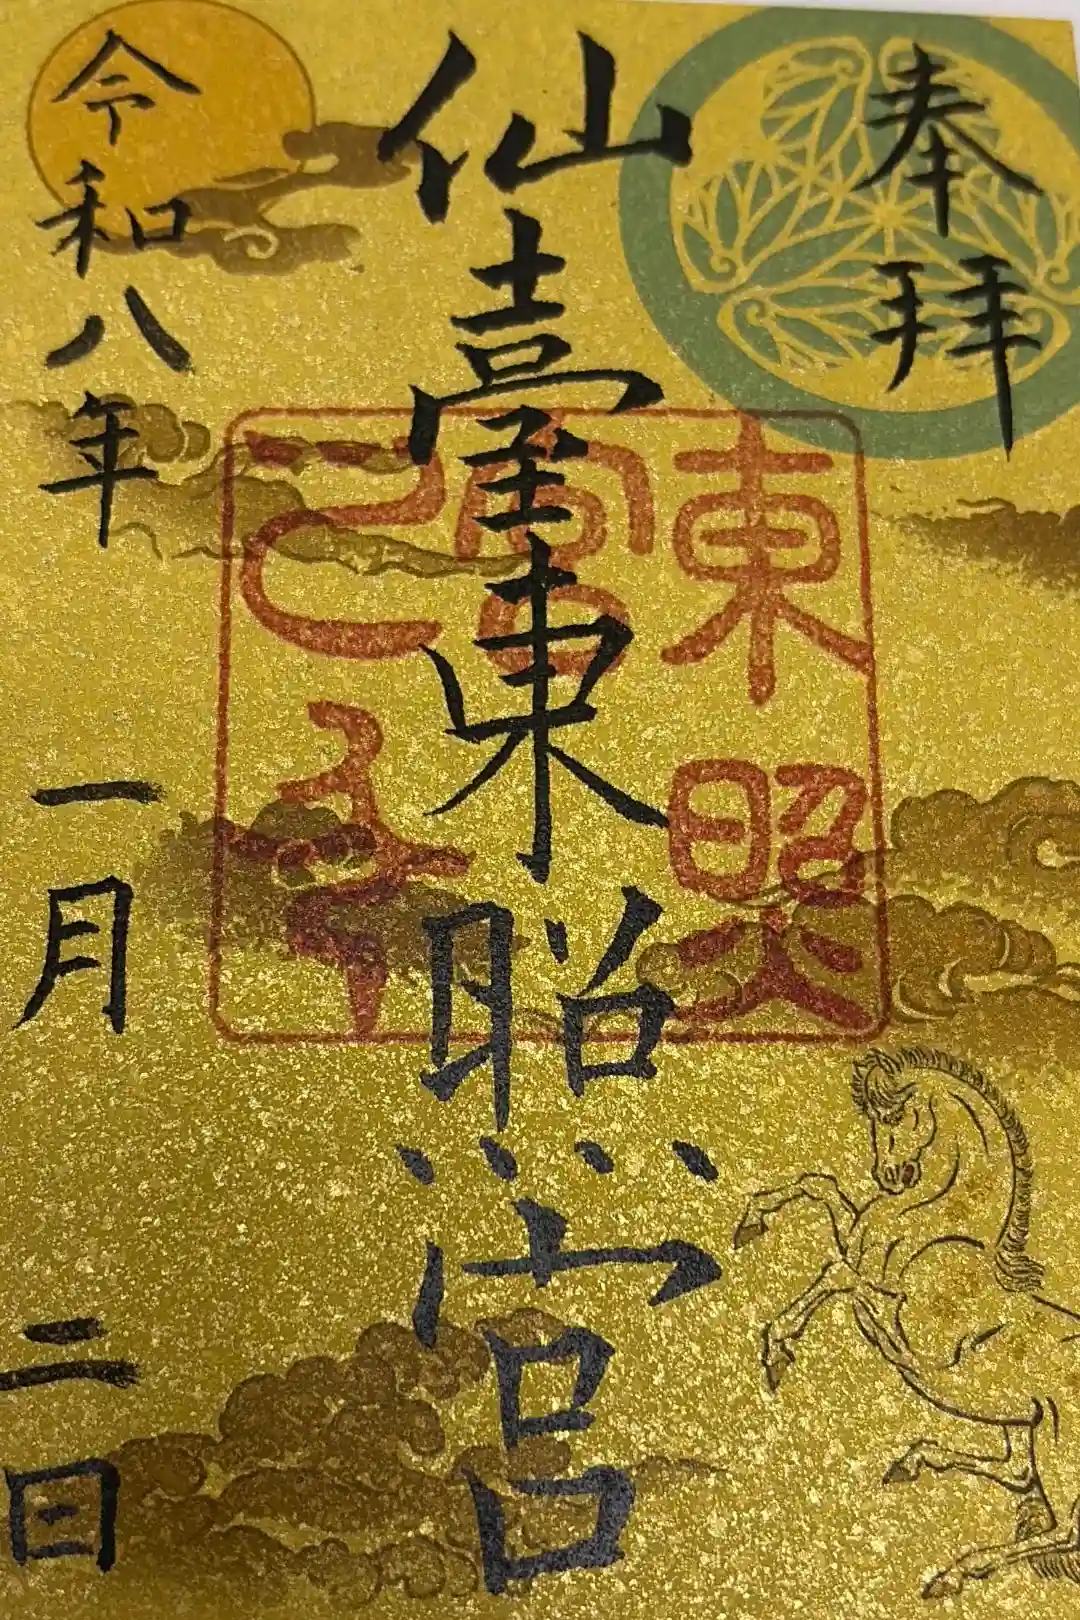 奉拝
仙臺東照宮
東照宮
令和八年
一月
二日